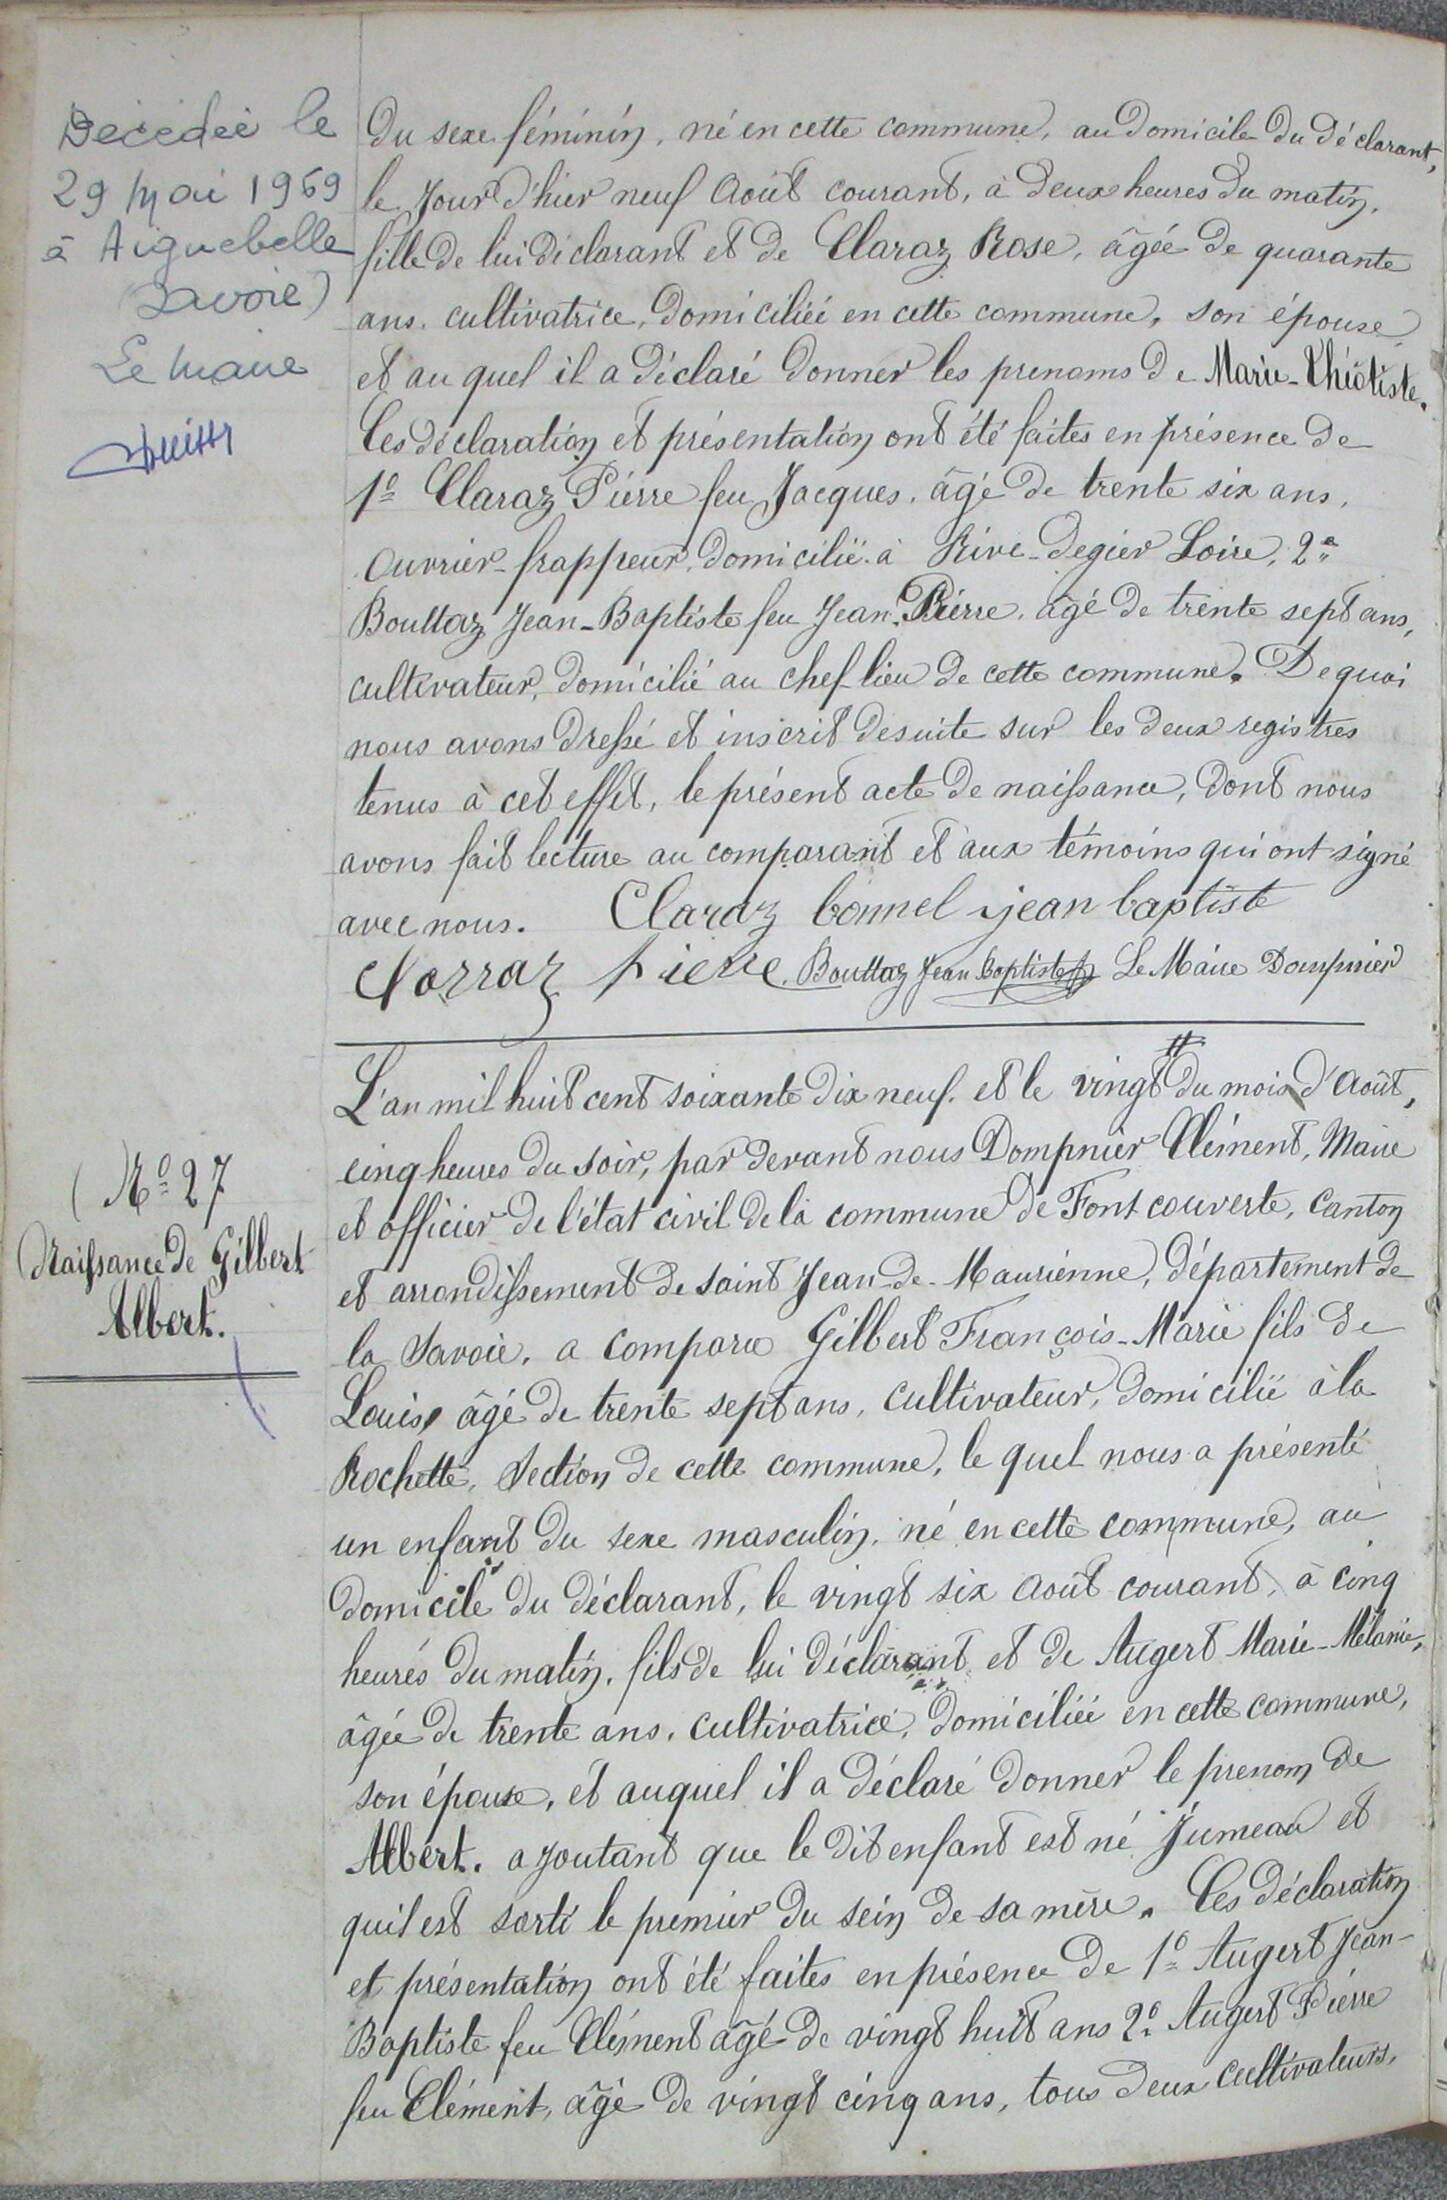 Décédée le
29 Mai 1969
à Aiguebelle
(Savoie)
Le Maire
du sexe féminin, né en cette commune, au domicile du déclarant,
le jour d'hier neuf Août courant, à deux heures du matin,
fille de lui déclarant et de Claraz Rose, âgée de quarante
ans, cultivatrice, domiciliée en cette commune, son épouse,
et au quel il a déclaré donner les prenoms de Marie-Théotiste.
Ces déclaration et présentation ont été faites en présence de
1º Claraz Pierre feu Jacques, âgé de trente six ans,
Ouvrier-frappeur, domicilié à Rive-degier Loire, 2º
Bouttaz Jean-Baptiste feu Jean-Pierre, âgé de trente sept ans,
cultivateur, domicilié au chef-lieu de cette commune. De quoi
nous avons dressé et inscrit desuite sur les deux registres
tenus à cet effet, le présent acte de naissance, dont nous
avons fait lecture au comparant et aux témoins qui ont signé
avec nous. Claraz bonnel jean baptiste
Norraz pierre Bouttaz Jean Baptiste Le Maire Dompnier
Nº 27
Naissance de Gilbert
Albert.
L'an mil huit cent soixante dix neuf et le vingt # du mois d'Août,
cinq heures du soir, par devant nous Dompnier Clément, Maire
et officier de l'état civil de la commune de Fontcouverte, Canton
et arrondissement de saint Jean-de-Maurienne, département de
la Savoie, a comparu Gilbert François-Marie fils de
Louis, âgé de trente sept ans, cultivateur, domicilié à la
Rochette, Section de cette commune, le quel nous a présenté
un enfant du sexe masculin, né en cette commune, au
domicile du déclarant, le vingt six Août courant, à cinq
heures du matin, fils de lui déclarant et de Augert Marie-Mélanie,
âgée de trente ans, cultivatrice, domiciliée en cette commune,
son épouse, et auquel il a déclaré donner le prenom de
Albert. ajoutant que le dit enfant est né Jumeau et
quil est sorti le premier du sein de sa mère. Ces déclaration
et présentation ont été faites en présence de 1º Augert Jean-
Baptiste feu Clément âgé de vingt huit ans 2º Augert Pierre
feu Clément, âgé de vingt cinq ans, tous deux cultivateurs,